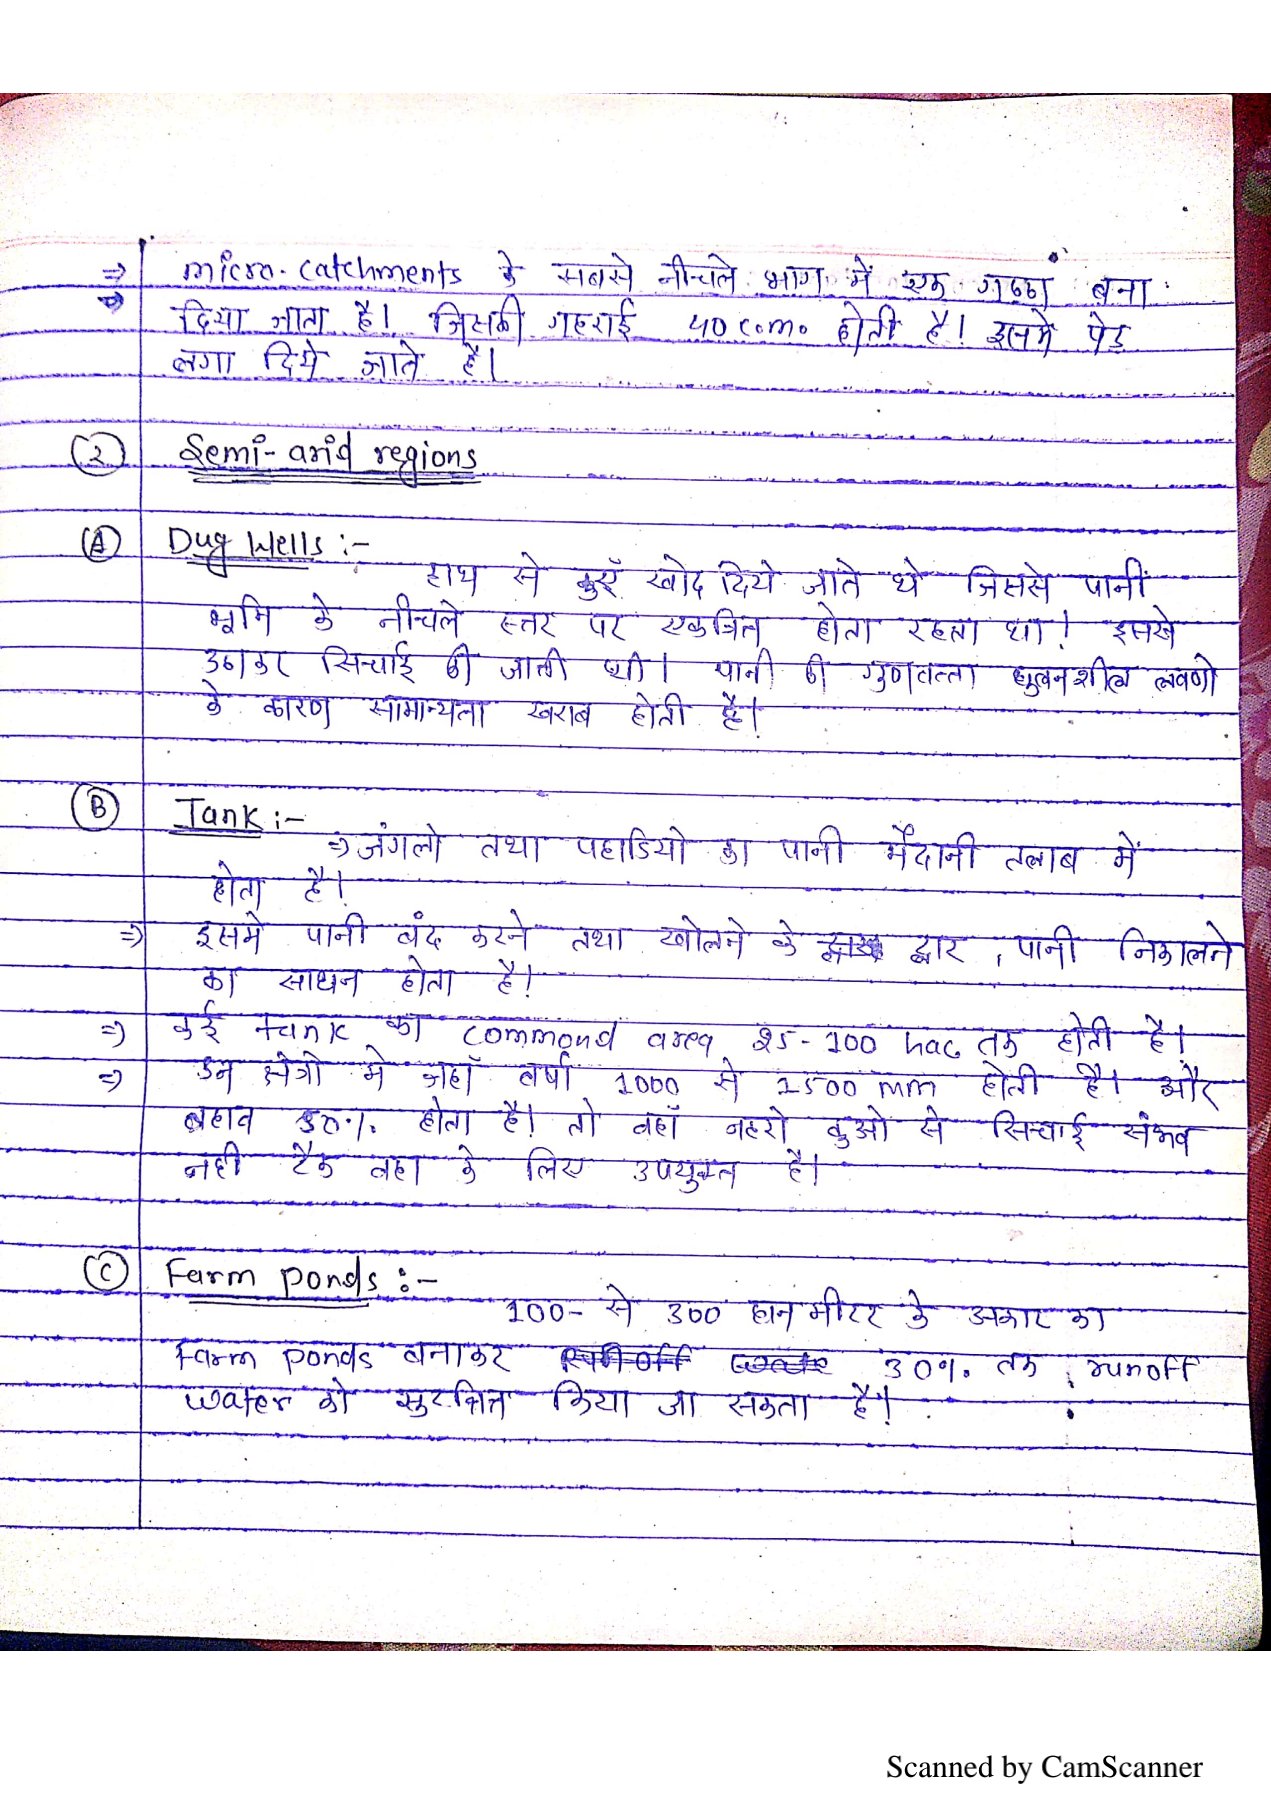 ⇒ micro-catchments के सबसे नीचले भाग में एक गढ्ढा बना
⇒ दिया जाता है। जिसकी गहराई 40 c.m. होती है। इसमे पेड़
लगा दिये जाते है।
(2) Semi-arid regions
(A) Dug Wells :-
हाथ से कुएँ खोद दिये जाते थे जिससे पानी
भूमि के नीचले स्तर पर एकत्रित होता रहता था। इसके
उठाकर सिन्चाई की जाती थी। पानी की गुणवत्ता घुलनशील लवणो
के कारण सामान्यता खराब होती है।
(B) Tank :-
⇒ जंगलो तथा पहाडियो का पानी मैदानी तलाब में
होता है।
⇒ इसमे पानी बंद करने तथा खोलने के द्वार , पानी निकालने
का साधन होता है।
⇒ कई tank का commond area 25-100 hac तक होती है।
⇒ उन क्षेत्रो मे जहाँ वर्षा 1000 से 1500 mm होती है। और
बहाव 50% होता है। तो वहाँ नहरो कुओ से सिन्चाई संभव
नही टैंक वहा के लिए उपयुक्त है।
(C) Farm ponds :-
100- से 300 हान मीटर के अकार का
Farm ponds बनाकर 30% तक runoff
water को सुरक्षित किया जा सकता है।
Scanned by CamScanner